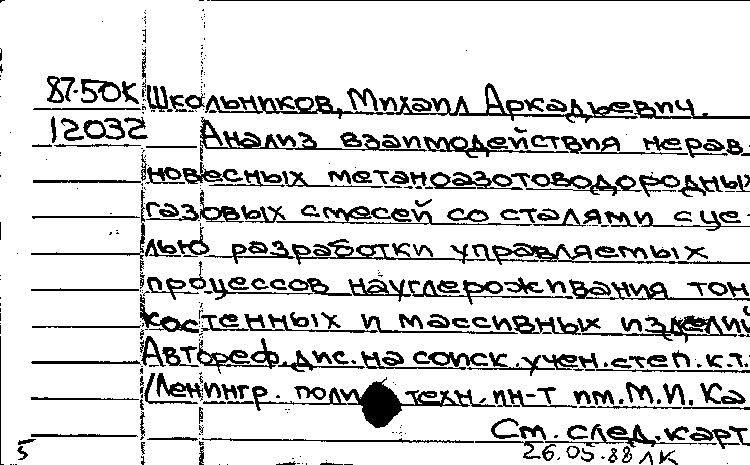 87-50К Школьников, Михаил Аркадьевич.
12032 Анализ взаимодействия нерав-
новесных метаноазотоводородных
газовых смесей со сталями с це-
лью разработки управляемых
процессов науглероживания тон
костенных и массивных изделий
Автореф. дис. на соиск. учен. степ. к.т.
/Ленингр. поли техн. ин-т им. М.И. Ка
См. след. карт
5 26.05.88 ЛК